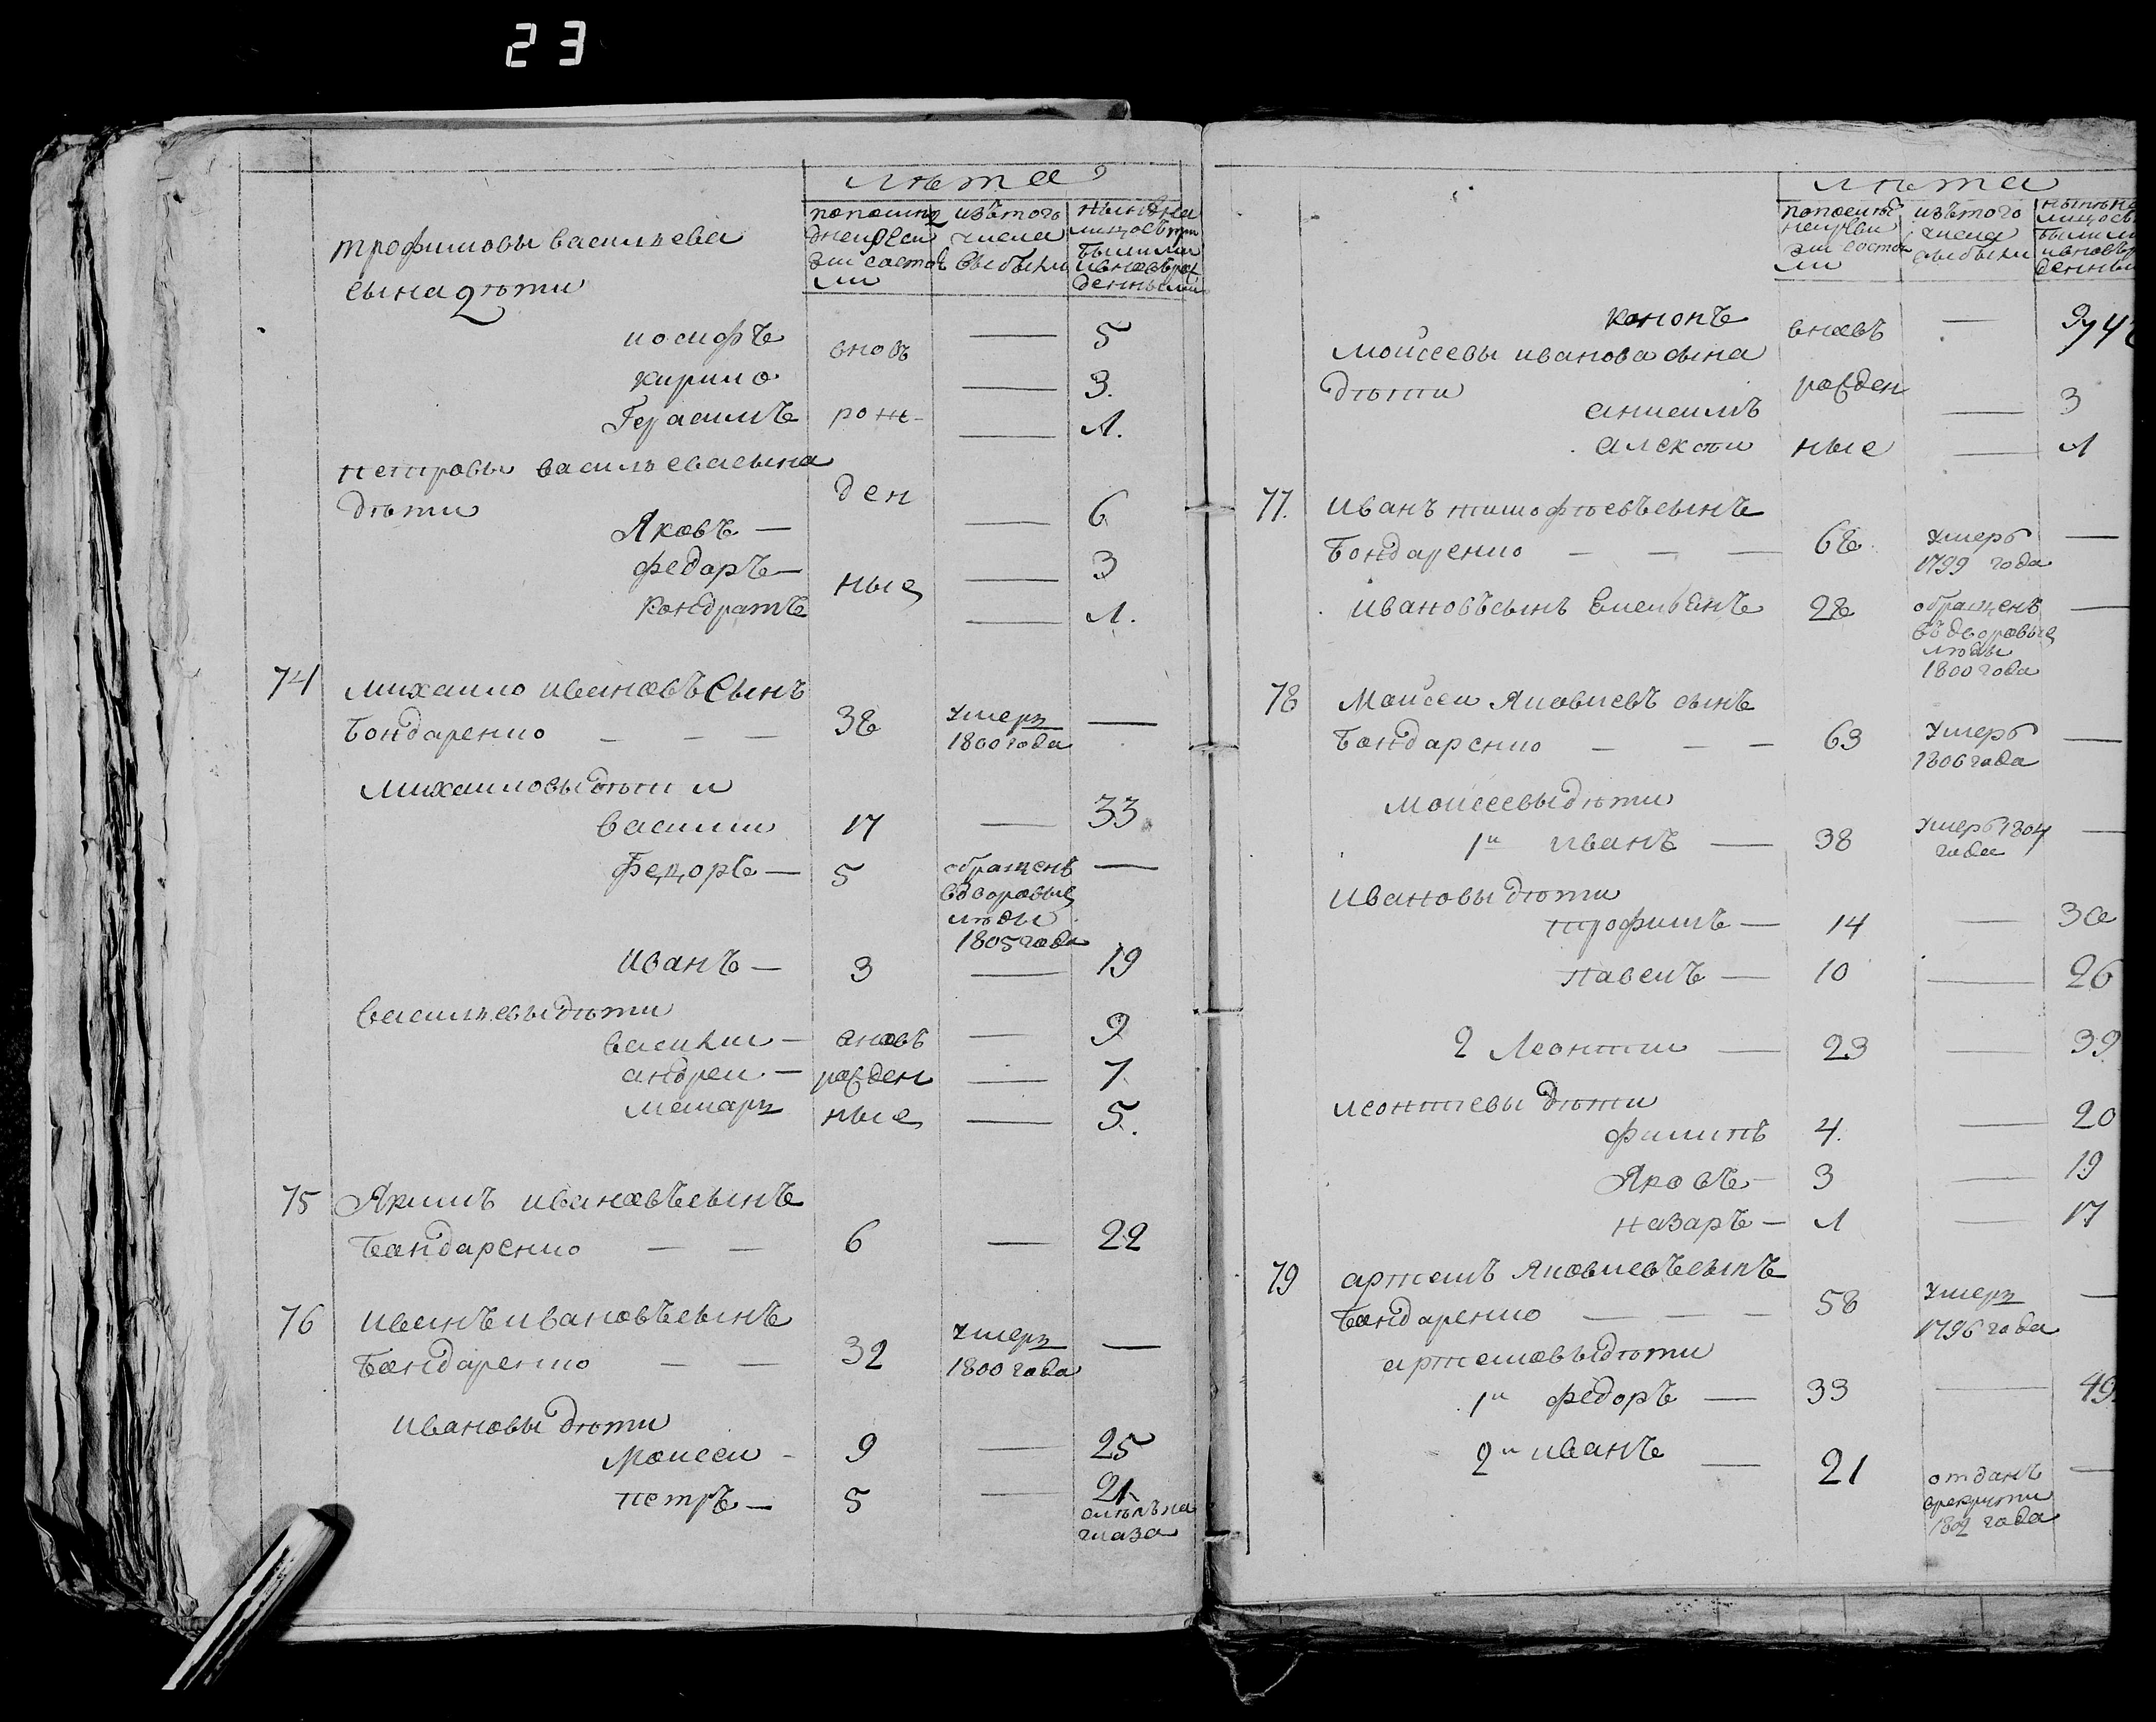 23
лѣта
попослѣдней ревизии состояли
изъ того числа выбыли
ныне на лицо съ прибылыми и вновь рожденными
трофимовы васильева
сына дѣти
иосифъ вновь — 5
кирило — 3.
Герасимъ рож- — 1.
петровы васильева сына
дѣти ден
Яковъ — — 6
федоръ — ные — 3
Кондратъ — 1.
74 михаило ивановъ Сынъ
бондаренко — — — 38 умеръ 1800 года —
михаиловы дѣти
василии 17 — 33
Федоръ — 5 обращенъ —
вдворовые
люди
1805 года
иванъ — 3 — 19
васильевы дѣти
василии — вновь — 9
андреи — рожден — 7.
ные — 5.
75 Якимъ ивановъ сынъ
бондаренко — — 6 — 22
76 иванъ ивановъ сынъ
бондаренко — — 32 умеръ 1800 года —
ивановы дѣти
Моисеи - 9 — 25
петръ — 5 — 21
глаза
лѣта
попослѣдней ревизии состояли
изъ того числа выбыли
кононъ вновь —
моисеевы иванова сына
дѣти рожден
анисимъ — 3
алексѣи ные — 1
77. иванъ тимофѣевъ сынъ
бондаренко — — — 68 умеръ —
1799 года
ивановъ сынъ Емельянъ 28 обращенъ —
въ дворовые
люди
1800 года
78 Моисеи Яковлевъ сынъ
бондаренко — — — 63 умеръ —
1806 года
моисеевы дѣти
1й иванъ — 38 умеръ 1804 —
года
ивановы дѣти
трофимъ — 14 — 30
павелъ — 10 — 26
2 Леонтии — 23 — 39
леонтиевы дѣти
филипъ 4. — 20
Яковъ — 3 — 19
назаръ — 1 — 17
79 артемъ Яковлевъ сынъ
бондаренко — — 58 умеръ —
1796 года
артемовы дѣти
1й федоръ — 33 — 49
2й иванъ — 21 отданъ —
врекруты
180 года